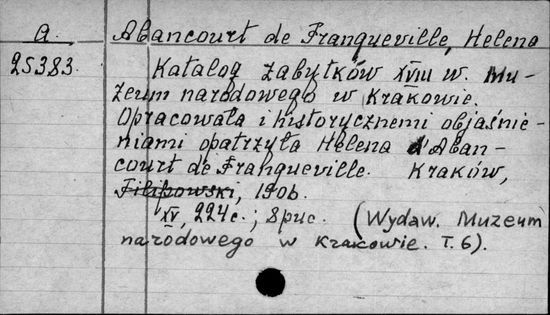 A. Abancourt de Franqueville, Helena
25383. Katalog zabytków XVIII w. Mu-
zeum narodowego w Krakowie.
Opracowała i historycznemi objaśnie-
niami opatrzyła Helena d'Aban-
court de Franqueville. Kraków,
Filipowski, 1906.
XV, 224 с.; 8 рис. (Wydaw. Muzeum
narodowego w Krakowie. T. 6).